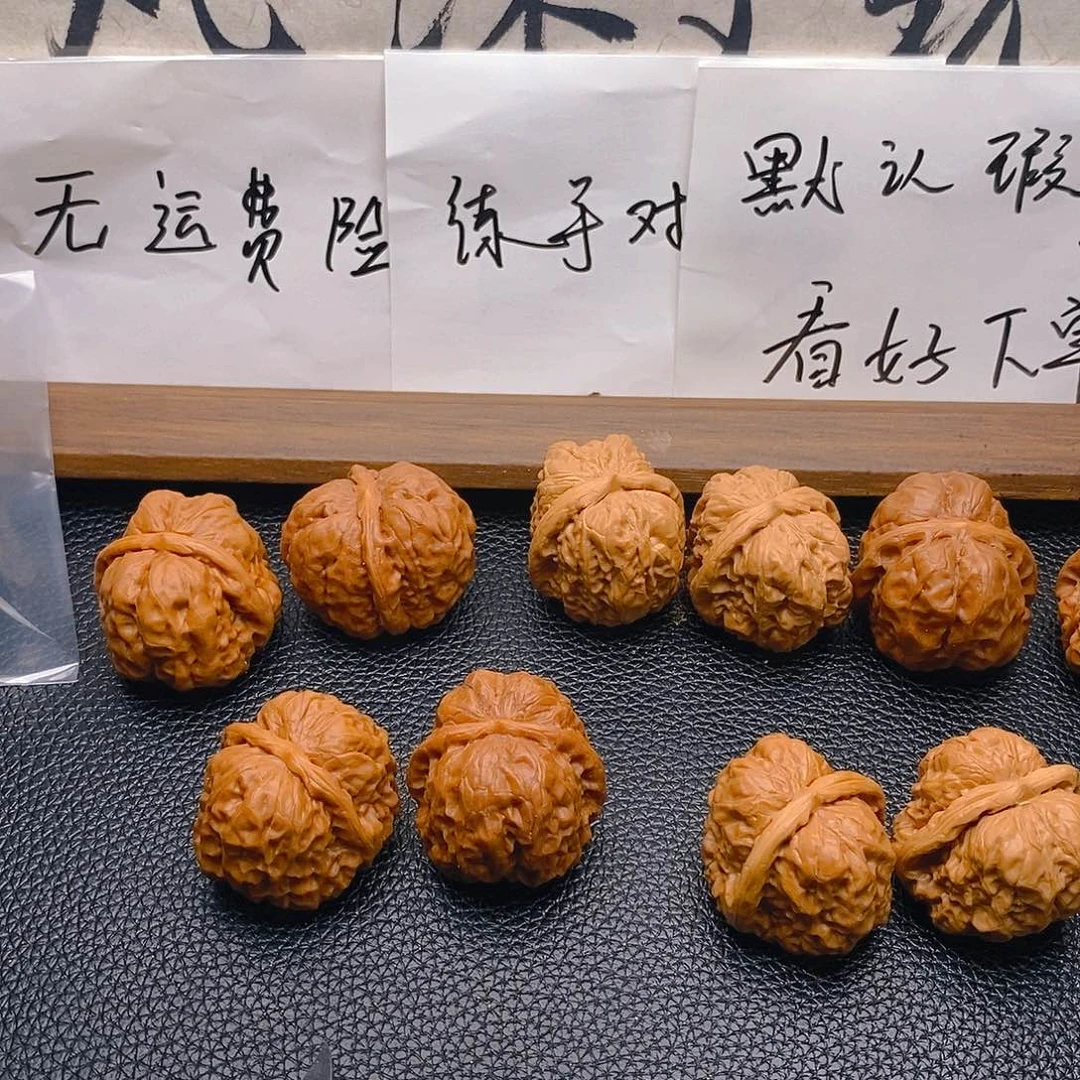 无运费险
练手对
默认瑕
看好下单